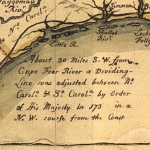 Waggoman
Riv.
No
Caroli
Little R.
Shallot
River
Lockw
Folly
About 30 Miles S.W. from
Cape Fear River a Dividing-
Line was adjusted between No.
Carola. & So. Carola. by Order
of His Majesty in 173 in a
N.W. course from the Coast